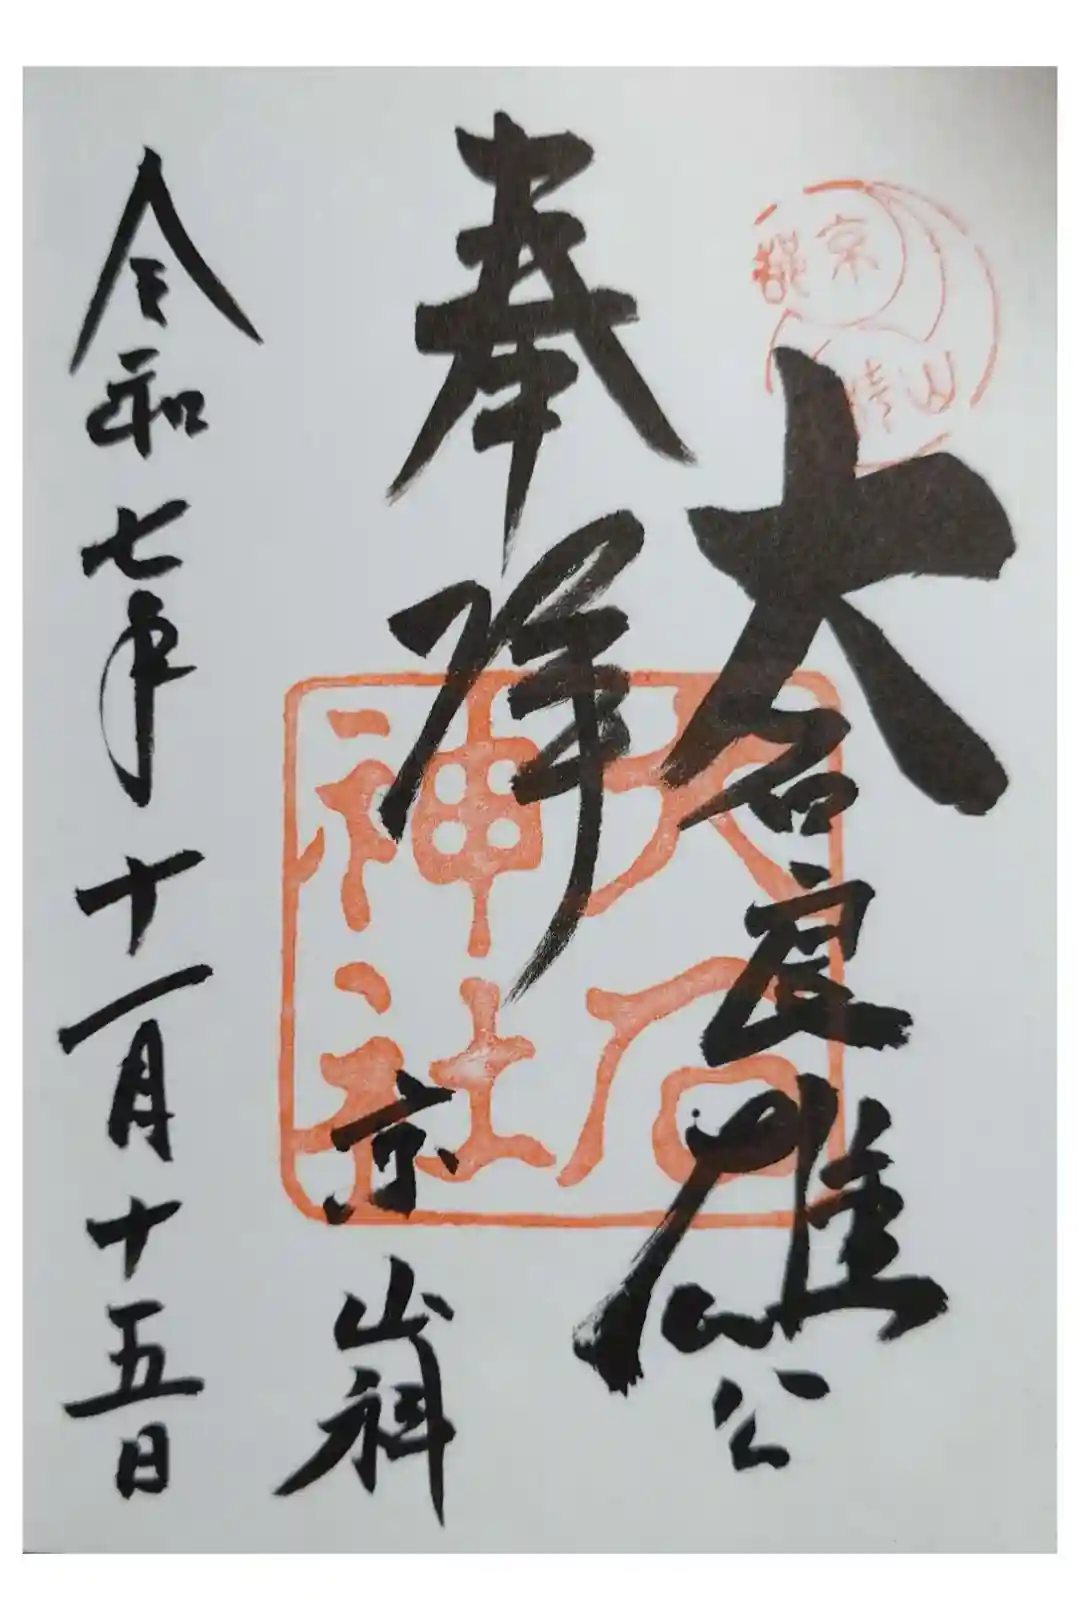 京都
大石良雄公
奉拝
大石
神社
京山科
令和七年十一月十五日